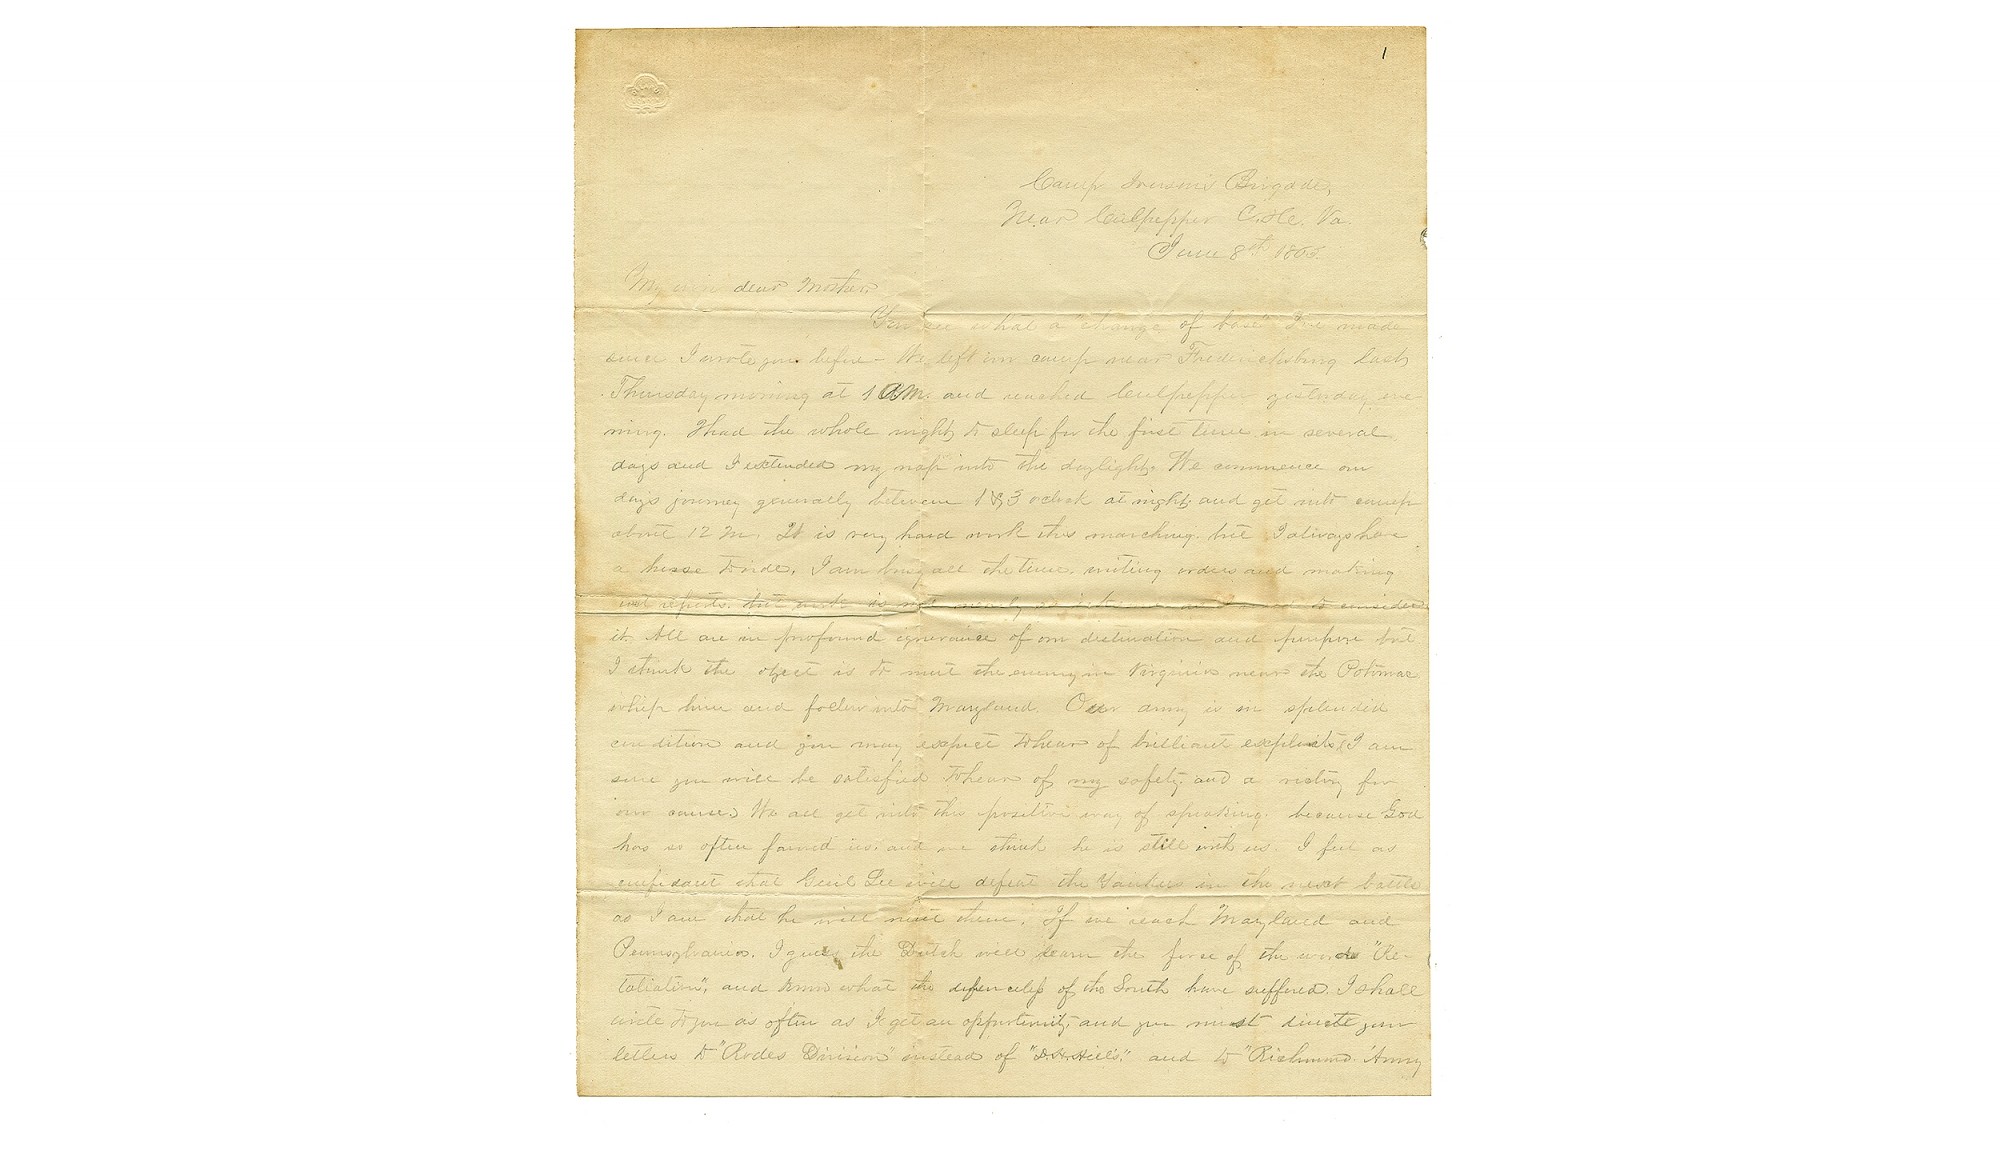 1
Camp Iverson's Brigade,
Near Culpepper C. H. Va.
June 8th 1863.
My dear Mother,
You see what a "change of base" I've made
since I wrote you before - We left our camp near Fredericksburg last
Thursday morning at 1 A.M. and reached Culpepper yesterday eve-
ning. I had the whole night to sleep for the first time in several
days and I extended my nap into the daylight. We commence our
day's journey generally between 1 & 3 o'clock at night and get into camp
about 12 M. It is very hard work this marching, but I always have
a horse to ride, I am busy all the time, writing orders and making
out reports, but work is not nearly as to consider
it. All are in profound ignorance of our destination and purpose but
I think the object is to meet the enemy in Virginia near the Potomac
whip him and follow into Maryland. Our army is in splendid
condition and you may expect to hear of brilliant exploits, I am
sure you will be satisfied to hear of my safety and a victory for
our cause. We all get into this positive way of speaking, because God
has so often favored us, and we think he is still with us. I feel as
confidant that Genl Lee will defeat the Yankees in the next battle
as I am that he will meet them. If we reach Maryland and
Pennsylvania, I guess the Dutch will learn the force of the words "Re-
taliation", and know what the defenceless of the South have suffered. I shall
write to you as often as I get an opportunity, and you must direct your
letters to "Rodes Division" instead of "D. H. Hill's," and to "Richmond. Army